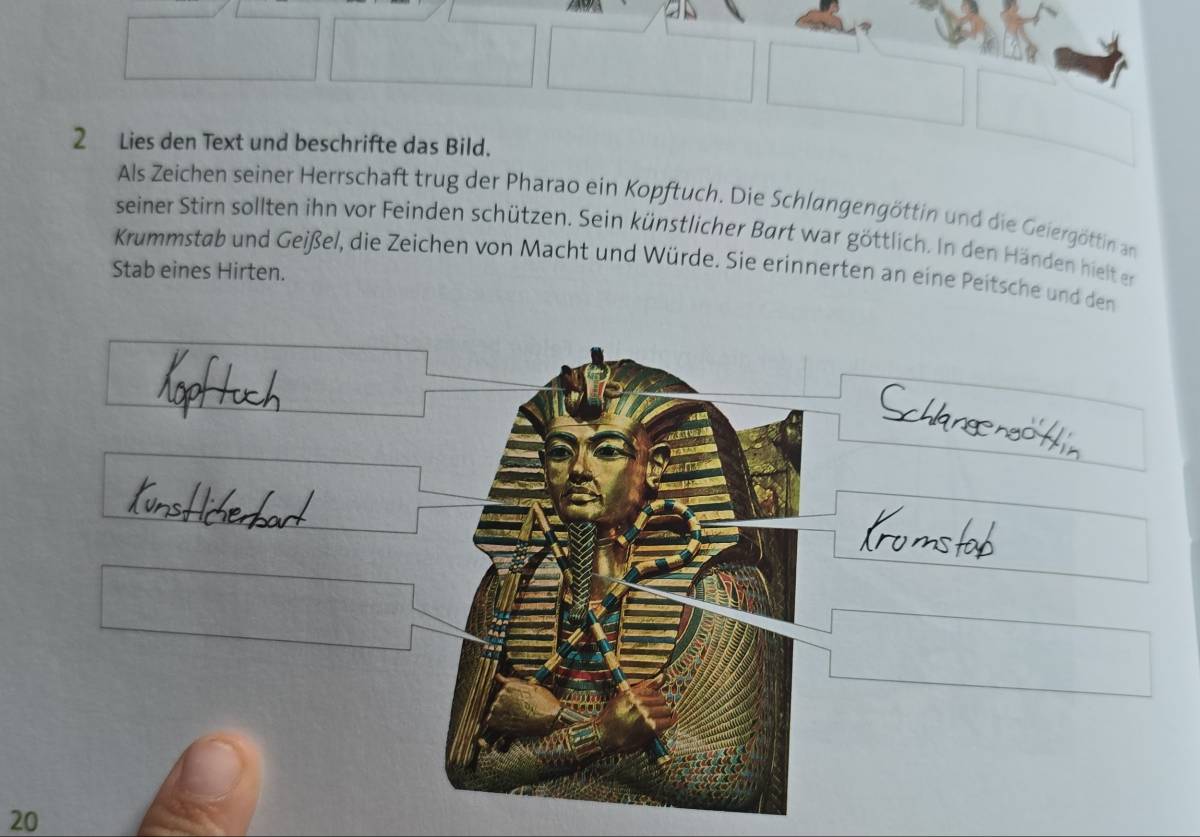 2 Lies den Text und beschrifte das Bild.
Als Zeichen seiner Herrschaft trug der Pharao ein Kopftuch. Die Schlangengöttin und die Geiergöttin an
seiner Stirn sollten ihn vor Feinden schützen. Sein künstlicher Bart war göttlich. In den Händen hielt er
Krummstab und Geißel, die Zeichen von Macht und Würde. Sie erinnerten an eine Peitsche und den
Stab eines Hirten.
Kopftuch
Schlangengöttin
Kunstlicherbart
Kromstab
20